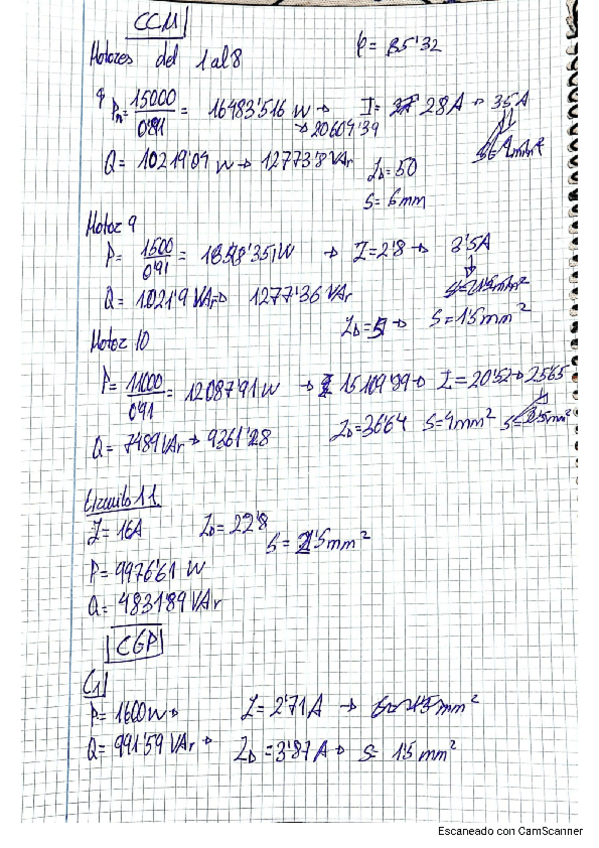 CCM
Motores del 1 al 8 φ = 25'32
Pn = 15000/0'91 = 16483'516 W → I = 28 A → 35 A
→ 20604'39
Q = 10219'04 W → 12773'8 VAr
ID = 50
S = 6mm
Motor 9
P = 1500/0'91 = 1648'351 W → I = 2'8 → 3'5A
Q = 1021'9 VAr → 1277'36 VAr
ID = 5 → S = 1'5mm²
Motor 10
P = 11000/0'91 = 12087'91 W → 15109'89 → I = 20'52 → 25'65
Q = 7489 VAr → 9361'28
ID = 36'64 S = 4mm²
Circuito 11.
I = 16A ID = 22'8 S = 2'5mm²
P = 9976'61 W
Q = 4831'89 VAr
CGP
C1
P = 1600 W → I = 2'71 A →
Q = 991'59 VAr → ID = 3'87 A → S = 1'5 mm²
Escaneado con CamScanner